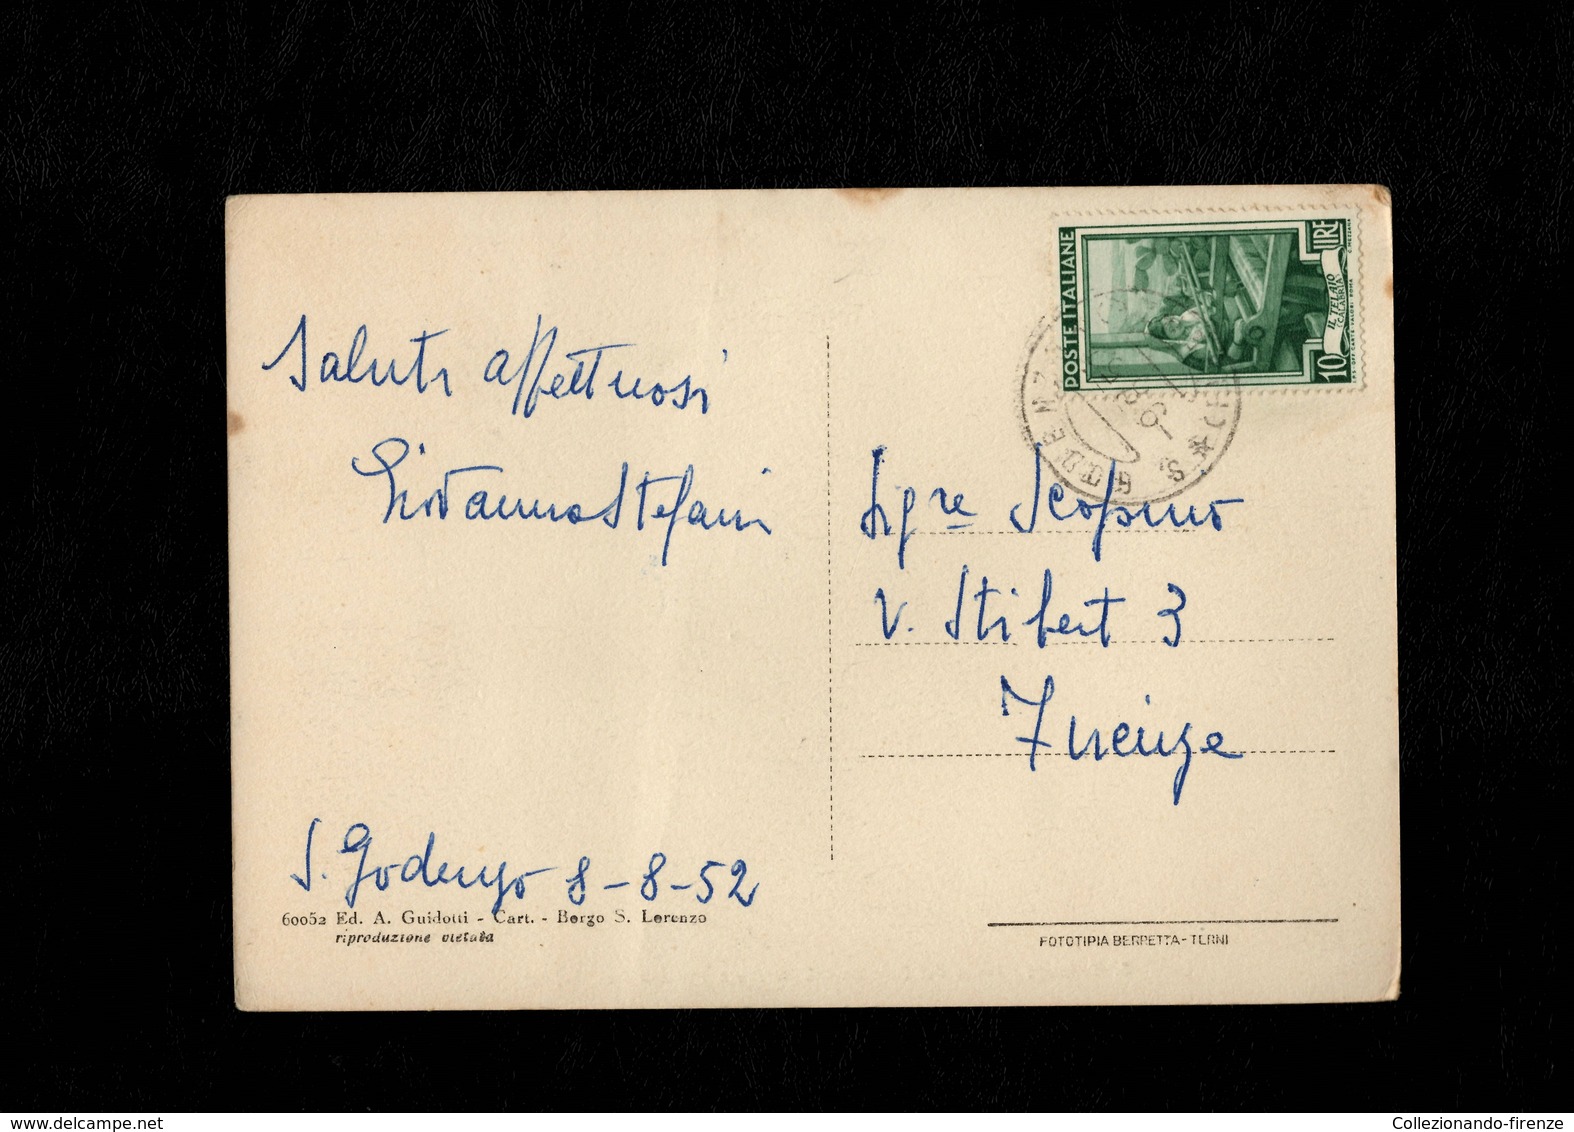 Saluti affettuosi
Giovanna Stefani
S. Godenzo 8-8-52
60052 Ed. A. Guidotti - Cart. - Borgo S. Lorenzo
riproduzione vietata
POSTE ITALIANE
LIRE
10
IL TELAIO
CALABRIA
S. GODENZO
Sig re
V. Stibert 3
Firenze
FOTOTIPIA BERRETTA - TERNI
Collezionando-firenze
www.delcampe.net